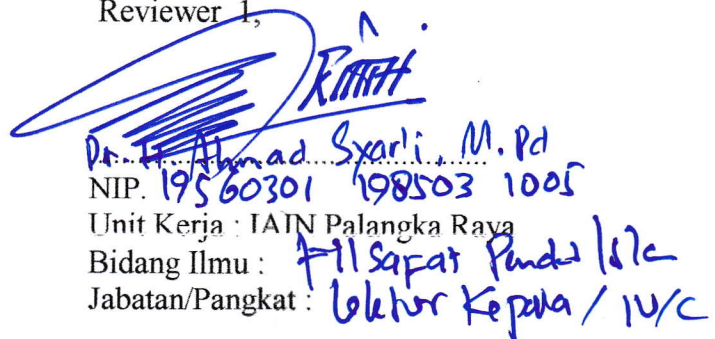 Reviewer 1,
Dr. H. Ahmad Syar'i, M.Pd
NIP. 19560301 198503 1005
Unit Kerja : IAIN Palangka Raya
Bidang Ilmu : Filsafat
Jabatan/Pangkat : Lektor Kepala / IV/C